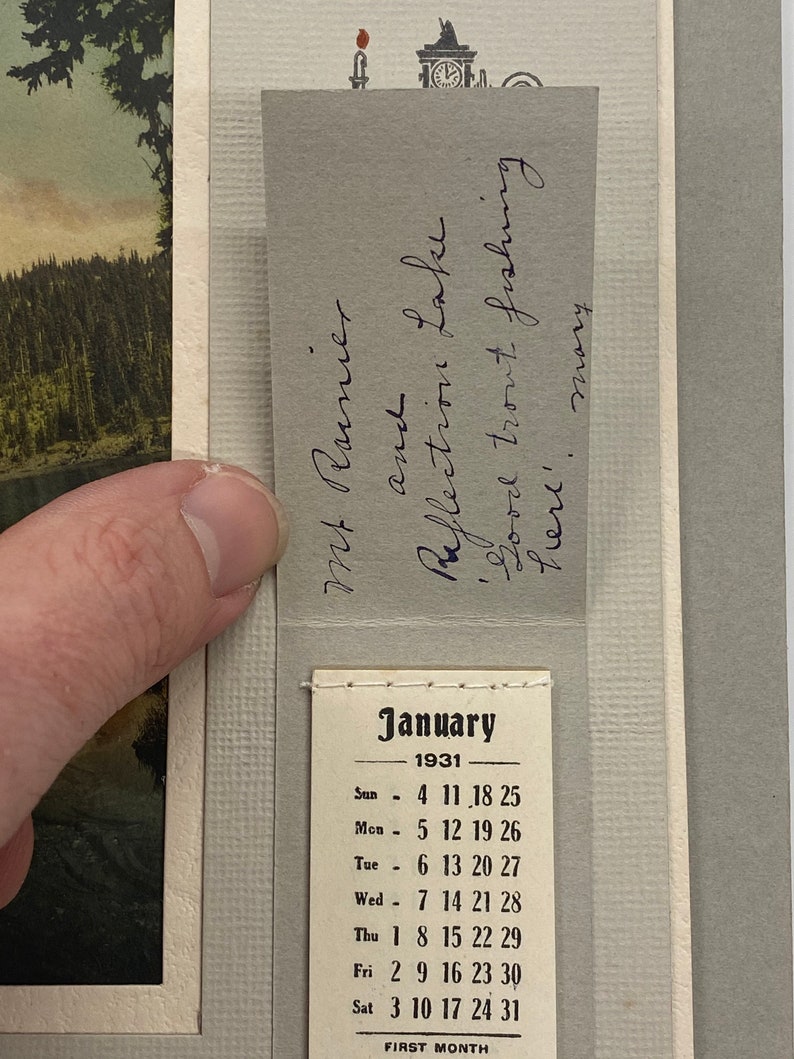 Mt Rainier
and
Reflection Lake
'Good trout fishing
here'. Mary
January
1931
Sun - 4 11 18 25
Mon - 5 12 19 26
Tue - 6 13 20 27
Wed - 7 14 21 28
Thu 1 8 15 22 29
Fri 2 9 16 23 30
Sat 3 10 17 24 31
FIRST MONTH